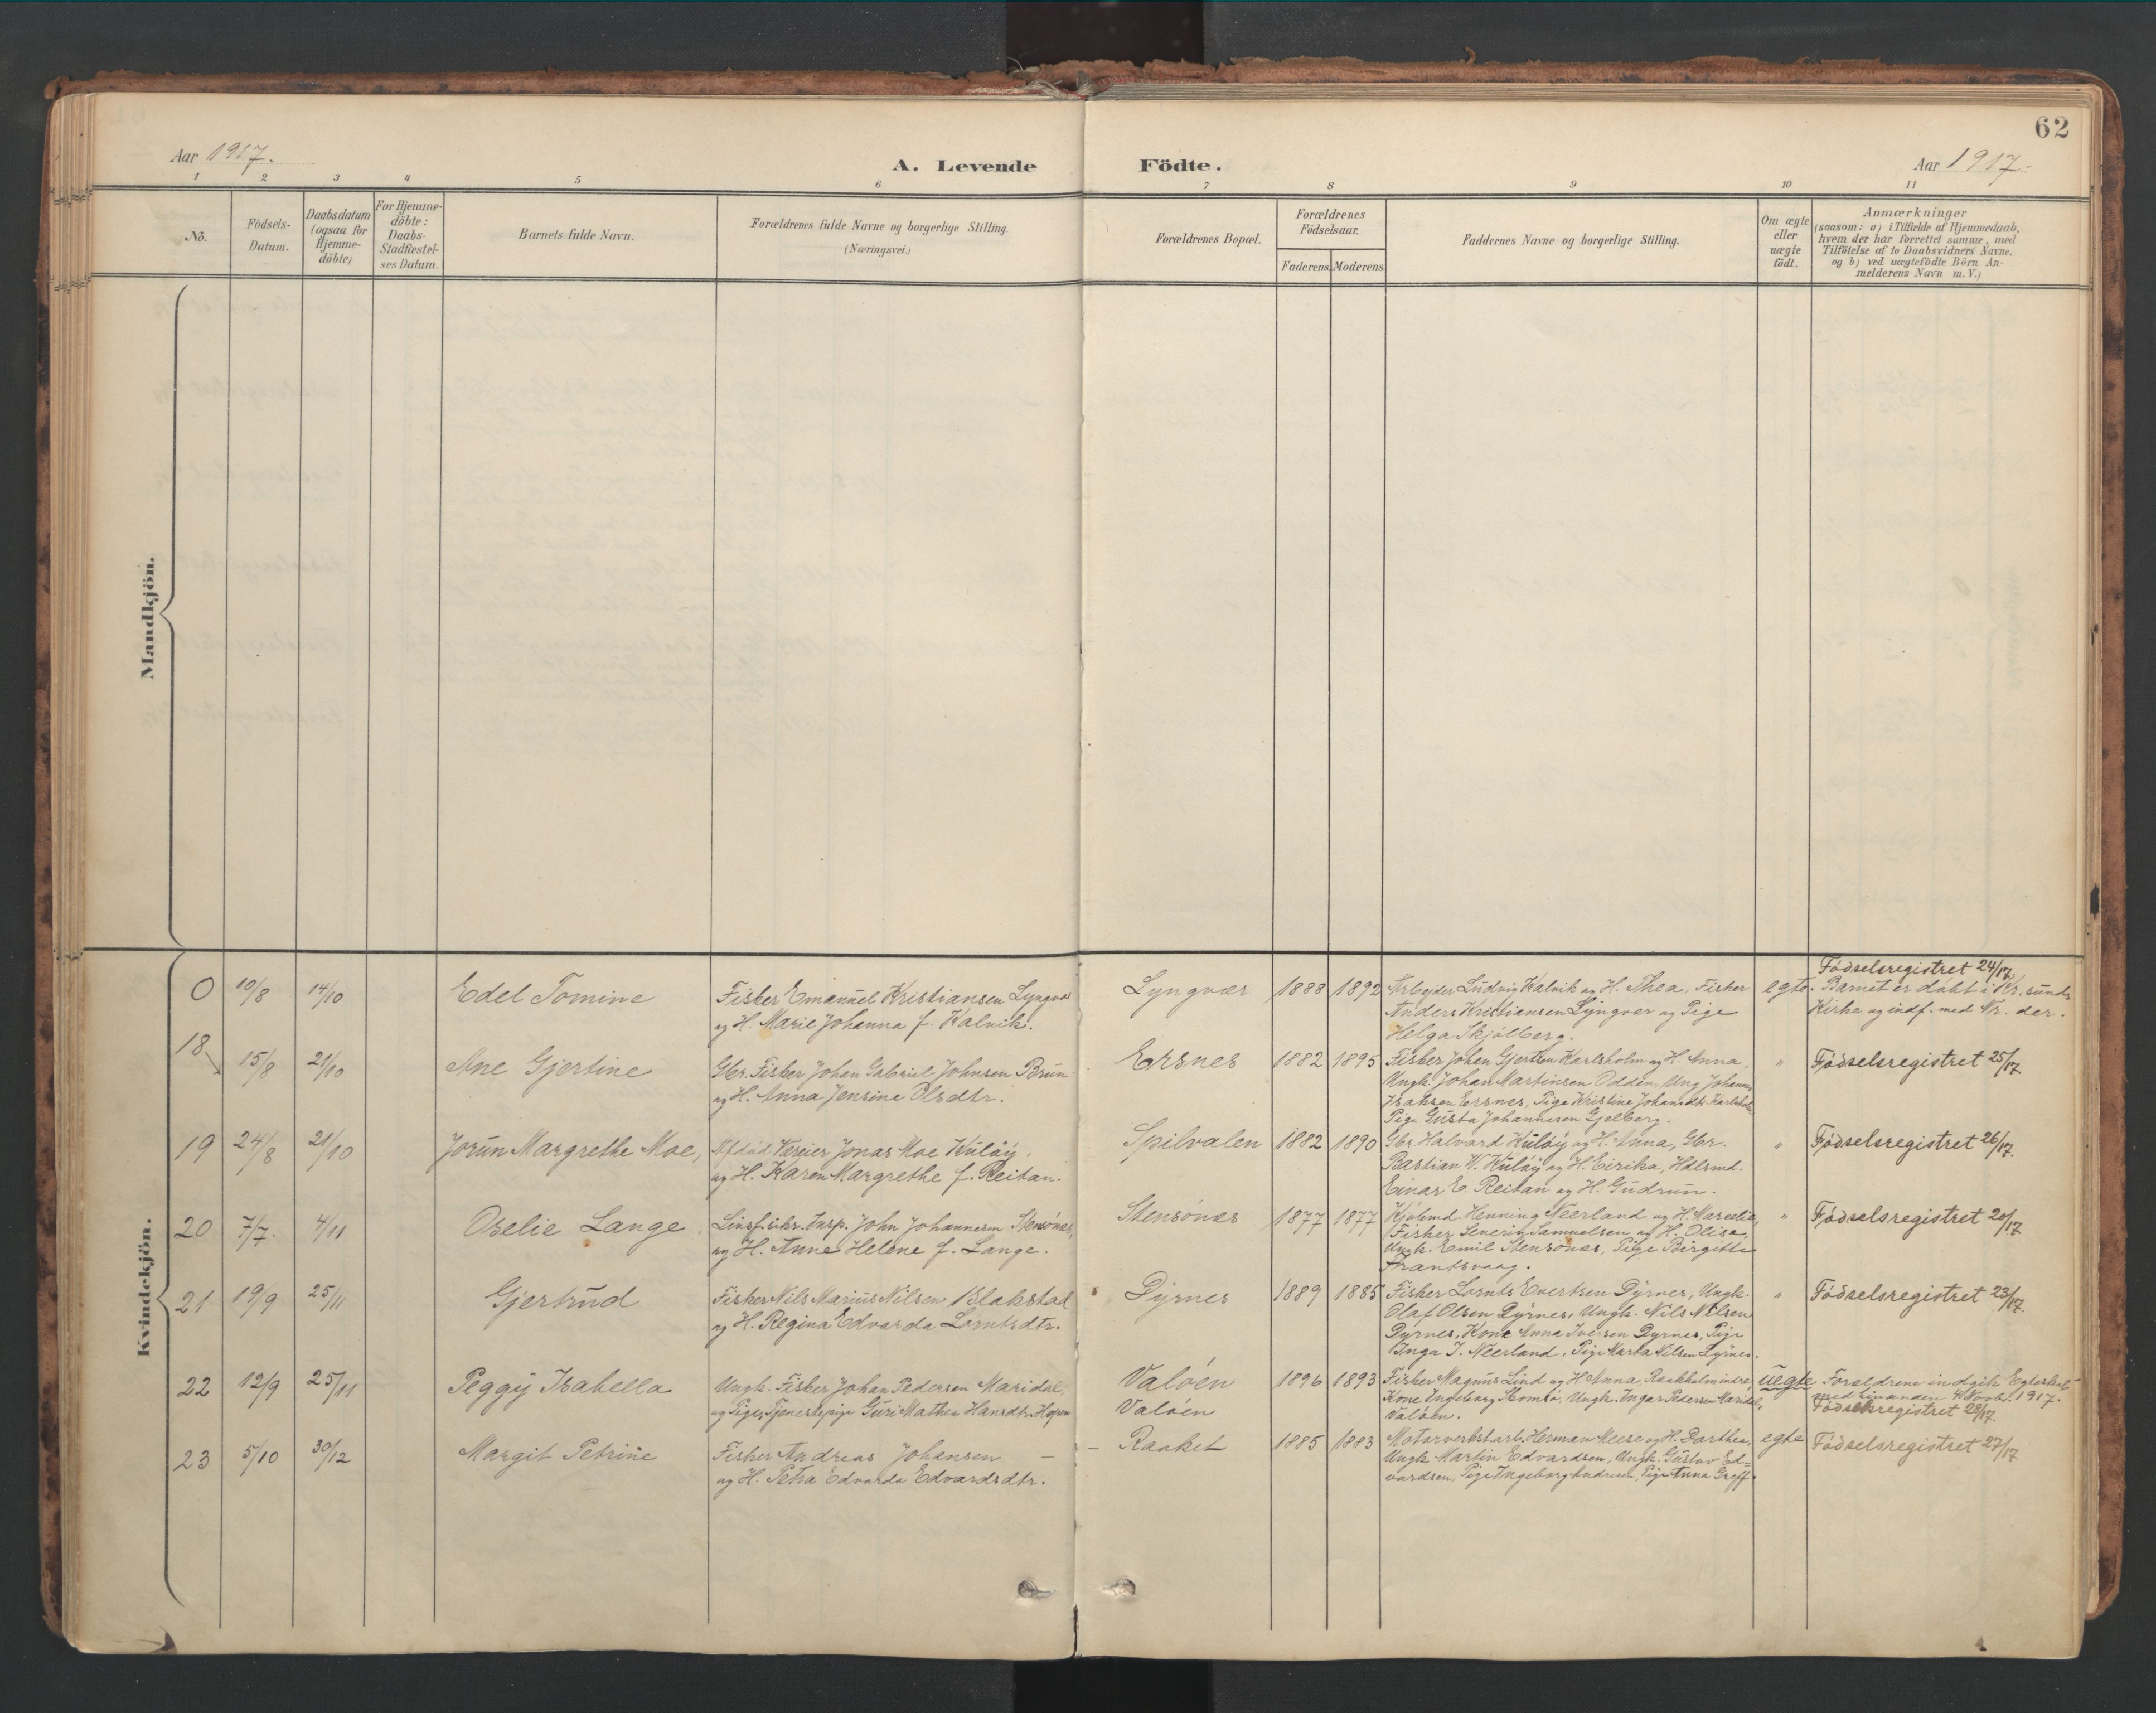 62
Aar 1917.
A. Levende Födte.
Aar 1917.
1 2 3 4 5 6 7 8 9 10 11
No.
Födsels-
Datum.
Daabsdatum
(ogsaa for
Hjemme-
döbte)
For Hjemme-
döbte:
Daabs-
Stadfæstel-
ses Datum.
Barnets fulde Navn.
Forældrenes fulde Navne og borgerlige Stilling.
(Næringsvei.)
Forældrenes Bopæl.
Forældrenes
Födselsaar.
Faderens. Moderens.
Faddernes Navne og borgerlige Stilling.
Om ægte
eller
uægte
födt.
Anmærkninger
(saasom: a) i Tilfælde af Hjemmedaab,
hvem der har forrettet samme, med
Tilföielse af to Daabsvidners Navne.
og b) ved uægtefödte Börn An-
melderens Navn m. V.)
Mandkjön.
Kvindekjön.
0 10/8 14/10 Edel Tomine
Fisker Emanuel Kristiansen Lyngvær
og H. Marie Johanna f. Kalvik.
Lyngvær 1888 1892
Arbejder Ludvig Kalvik og H. Thea, Fisker
Anders Kristiansen Lyngvær og Pige
Helga Skjølberg.
egte.
Fódselsregistret 24/17
Barnet er dóbt i Kr. sunds
Kirke og indf. med Nr. der.
18 15/8 21/10 Ane Gjertine
Gbr. Fisker Johan Gabriel Johnsen Brun
og H. Anna Jensine Olsdtr.
Ersnes 1882 1895
Fisker Johan Gjertsen Karlsholm og H. Anna,
Ungk. Johan Martinsen Odden, Ung Johannes
Isaksen Ersnes, Pige Kristine Johansdtr. Karlsholm
Pige Gusta Johannesen Gjelberg.
" Fódselsregistret 25/17
19 24/8 21/10 Jorun Margrethe Moe,
Afdód Væreier Jonas Moe Kulóy,
og H. Karen Margrethe f. Reitan.
Spilvalen 1882 1890
Gbr. Halvard Kulóy og H. Anna, Gbr.
Bastian W. Kulóy og H. Eirika, Hdlsmd.
Einar E. Reitan og H. Gudrun.
" Fódselsregistret 26/17.
20 7/7. 4/11 Oselie Lange
Linsf. sikr. Insp. John Johannesen Stensónes,
og H. Anne Helene f. Lange.
Stensónes 1877 1877
Kjøbmd. Henning Neerland og H.
Fisker Severin Samuelsen og H. Olise,
Ungk. Emil Stensónes, Pige Birgitte
Frantsvaag.
" Fódselsregistret 20/17
21 19/9 25/11 Gjertrud
Fisker Nils Marius Nilsen Blakstad
og H. Regina Edvarda Lorntsdtr.
Dyrnes 1889 1885
Fisker Lornts Evertsen Dyrnes, Ungk.
Olaf Olsen Dyrnes, Ungk. Nils Nilsen
Dyrnes, Kone Anna Iversen Dyrnes, Pige
Inga J. Neerland, Pige Marta Nilsen Dyrnes.
" Fódselsregistret 23/17.
22 12/9 25/11 Peggy Isabella
Ungk. Fisker Johan Pedersen Maridal,
og Pige, Tjenestepige Guri Mathea Hansdtr. Hopen
Valóen
Valóen
1896 1893
Fisker Magnus Lind og H. Anna, Raakholm indre,
Kone Ingeborg Skomsó, Ungk. Ingar Pedersen Maridal,
Valóen.
uegte
Foreldrene indgik Egteskab
med hinanden 4 Novbr. 1917.
Fódselsregistret 28/17.
23 5/10 30/12 Margit Petrine
Fisker Andreas Johansen –
og H. Petra Edvarda Edvardsdtr.
– Raaket 1885 1883
Motorverkstarb. Herman Meese og H. Dorthea,
Ungk. Martin Edvardsen, Ungk. Gustav Ed-
vardsen, Pige Ingeborg Andresen, Pige Anna Greff.
egte Fódselsregistret 27/17